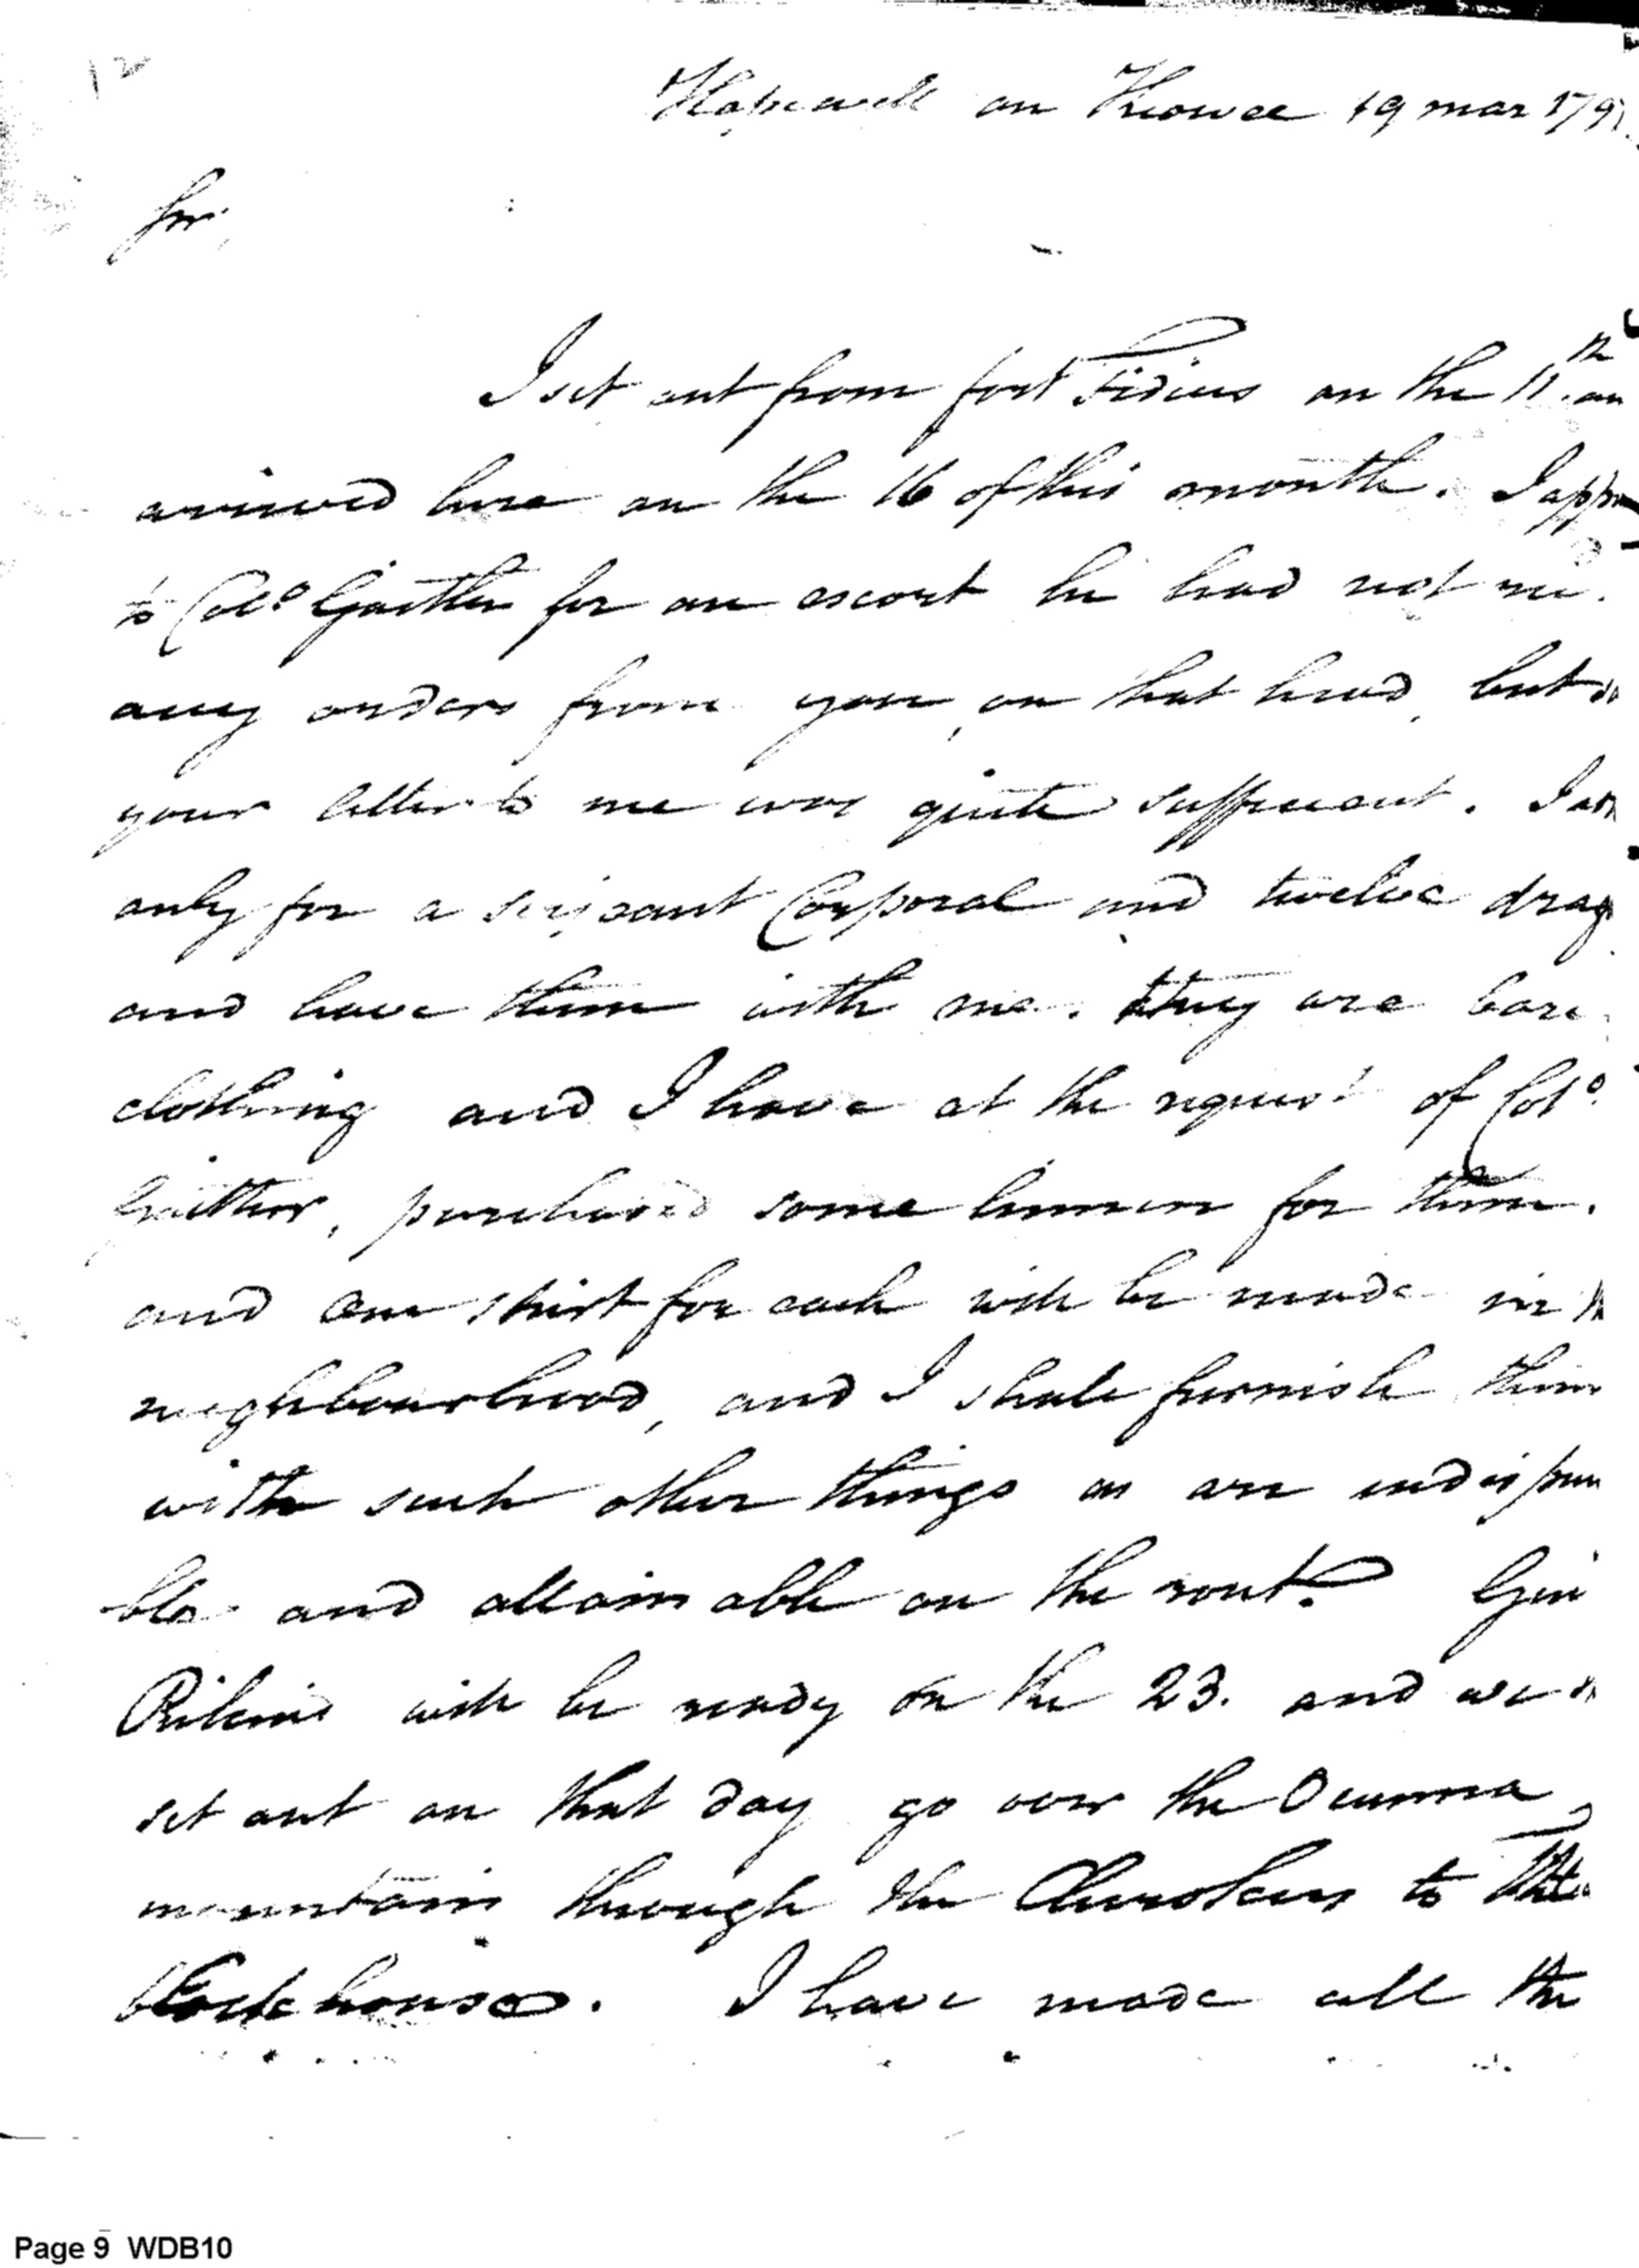 12
Hopewell on Keowee 19 mar 179
Sir,
I set out from fort Fidius on the 11th. an
arrived here on the 16 of this month. I app
to Colo. Gaither for an escort he had not re
any orders from you, on that head, but
your letter to me was quite sufficient. I as
only for a serjeant Corporal and twelve drag
and have them with me. they are bare
clothing and I have at the request of Colo.
Gaither, purchased some linnen for them.
and one shirt for each will be made in
neighbourhood, and I shall furnish them
with such other things as are indispen
ble and attainable on the rout. Gen
Pickins will be ready on the 23. and we
set out on that day go over the Ocunna
mountain through the Cherokees to
block house. I have made all the
Page 9 WDB10